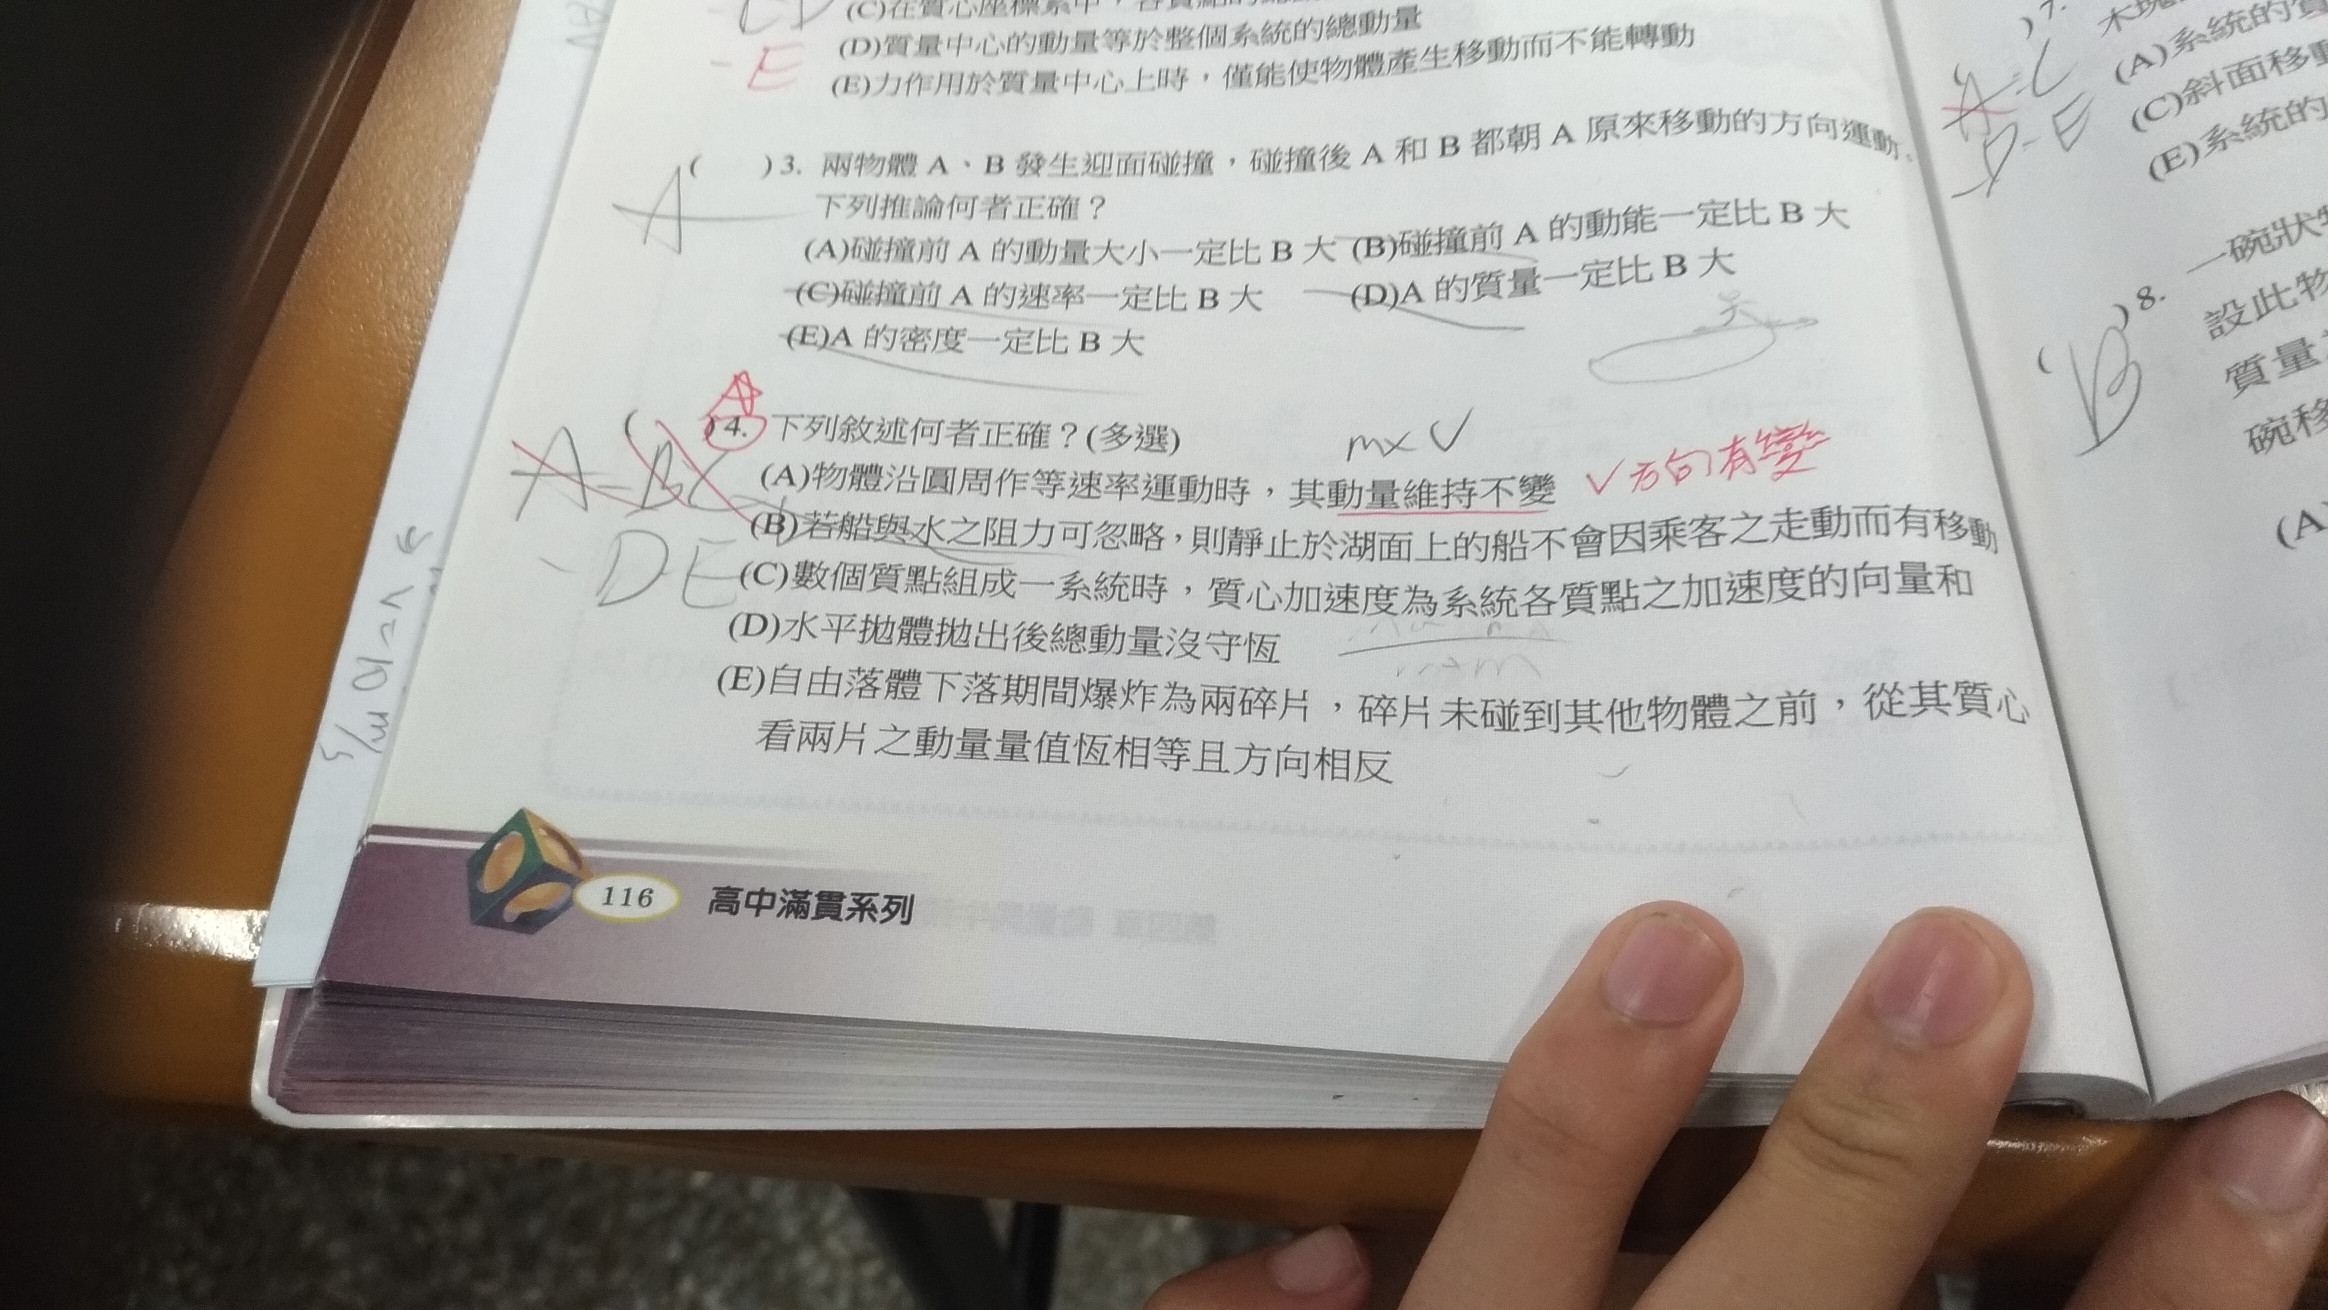 (D)質量中心的動量等於整個系統的總動量
E
(E)力作用於質量中心上時，僅能使物體產生移動而不能轉動
( )3. 兩物體 A、B 發生迎面碰撞，碰撞後 A 和 B 都朝 A 原來移動的方向運動。
A
下列推論何者正確？
(A)碰撞前 A 的動量大小一定比 B 大 (B)碰撞前 A 的動能一定比 B 大
(C)碰撞前 A 的速率一定比 B 大 (D)A 的質量一定比 B 大
(E)A 的密度一定比 B 大
( )4. 下列敘述何者正確？(多選)
m×V
A-BC
(A)物體沿圓周作等速率運動時，其動量維持不變
V方向有變
(B)若船與水之阻力可忽略，則靜止於湖面上的船不會因乘客之走動而有移動
-DE
(C)數個質點組成一系統時，質心加速度為系統各質點之加速度的向量和
(D)水平拋體拋出後總動量沒守恆
(E)自由落體下落期間爆炸為兩碎片，碎片未碰到其他物體之前，從其質心
看兩片之動量量值恆相等且方向相反
116 高中滿貫系列
)7.
(A)系統的
(C)斜面移動
(E)系統的
A-C
D-E
)8.
一碗狀
設此物
質量
碗移
(A)
B